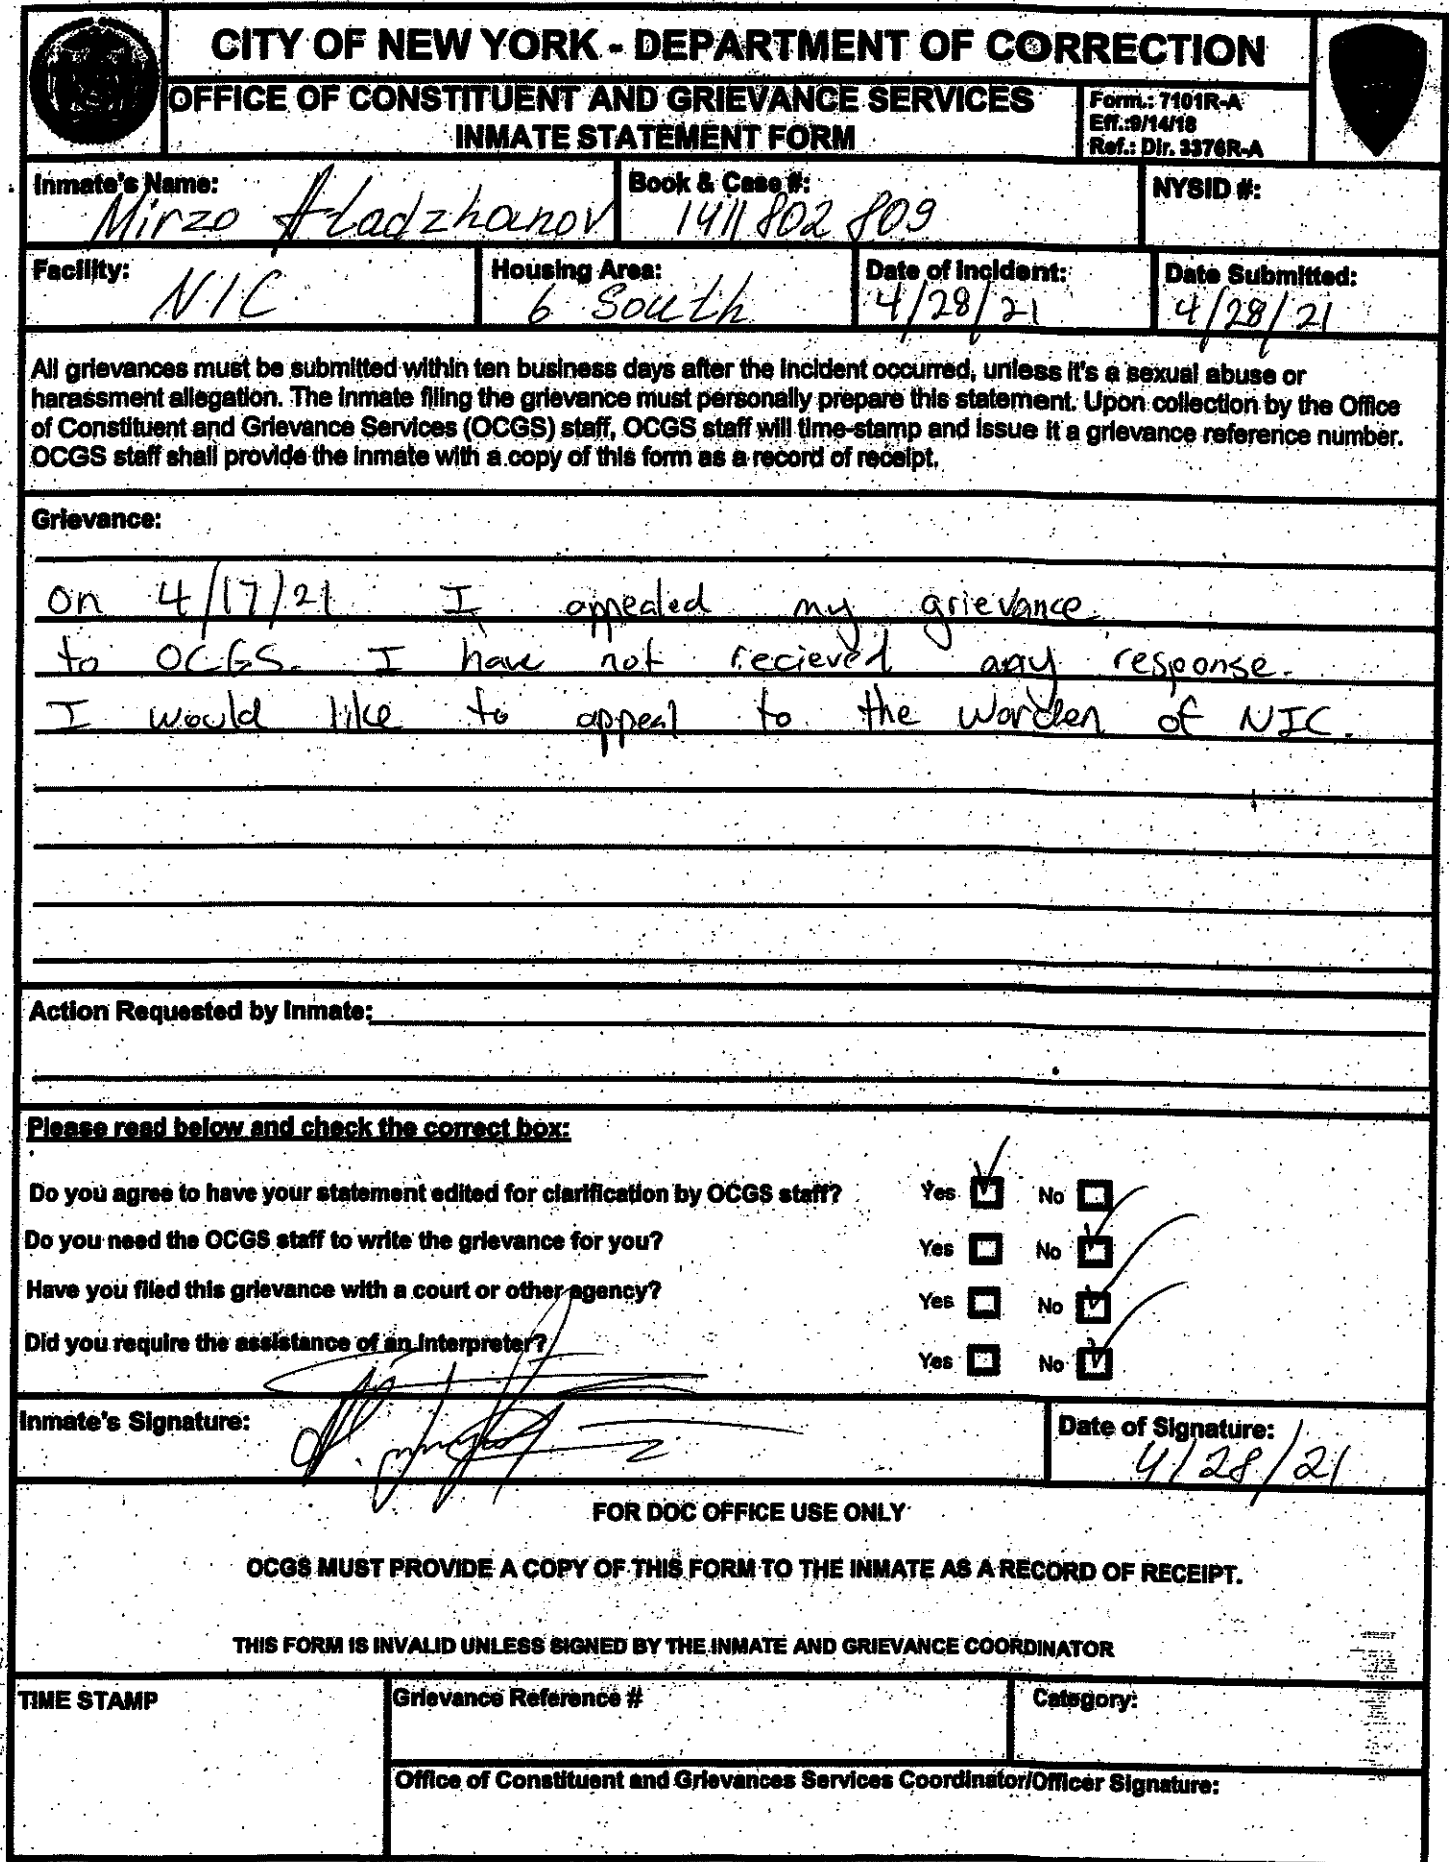 CITY OF NEW YORK - DEPARTMENT OF CORRECTION
OFFICE OF CONSTITUENT AND GRIEVANCE SERVICES
INMATE STATEMENT FORM
Form.: 7101R-A
Eff.:9/14/18
Ref.: Dir. 3376R-A
Inmate's Name:
Mirzo Atadzhanov
Book & Case #:
1411802809
NYSID #:
Facility:
NIC
Housing Area:
6 South
Date of Incident:
4/28/21
Date Submitted:
4/28/21
All grievances must be submitted within ten business days after the incident occurred, unless it's a sexual abuse or
harassment allegation. The inmate filing the grievance must personally prepare this statement. Upon collection by the Office
of Constituent and Grievance Services (OCGS) staff, OCGS staff will time-stamp and issue it a grievance reference number.
OCGS staff shall provide the inmate with a copy of this form as a record of receipt.
Grievance:
On 4/17/21 I appealed my grievance
to OCGS. I have not recieved any response.
I would like to appeal to the Warden of NIC.
Action Requested by Inmate:
Please read below and check the correct box:
Do you agree to have your statement edited for clarification by OCGS staff? Yes No
Do you need the OCGS staff to write the grievance for you? Yes No
Have you filed this grievance with a court or other agency? Yes No
Did you require the assistance of an interpreter? Yes No
Inmate's Signature:
Date of Signature:
4/28/21
FOR DOC OFFICE USE ONLY
OCGS MUST PROVIDE A COPY OF THIS FORM TO THE INMATE AS A RECORD OF RECEIPT.
THIS FORM IS INVALID UNLESS SIGNED BY THE INMATE AND GRIEVANCE COORDINATOR
TIME STAMP
Grievance Reference #
Category:
Office of Constituent and Grievances Services Coordinator/Officer Signature: